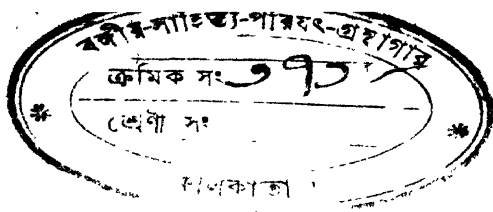 বঙ্গীয়-সাহিত্য-পরিষৎ-গ্রন্থাগার
ক্রমিক সং ৩৭১
শ্রেণী সং
কলিকাতা